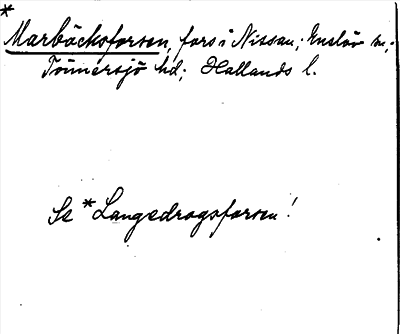 *
Marbäcksforsen, fors i Nissan; Enslöv sn;
Tönnersjö hd; Hallands l.
Se *Langedragsforsen!